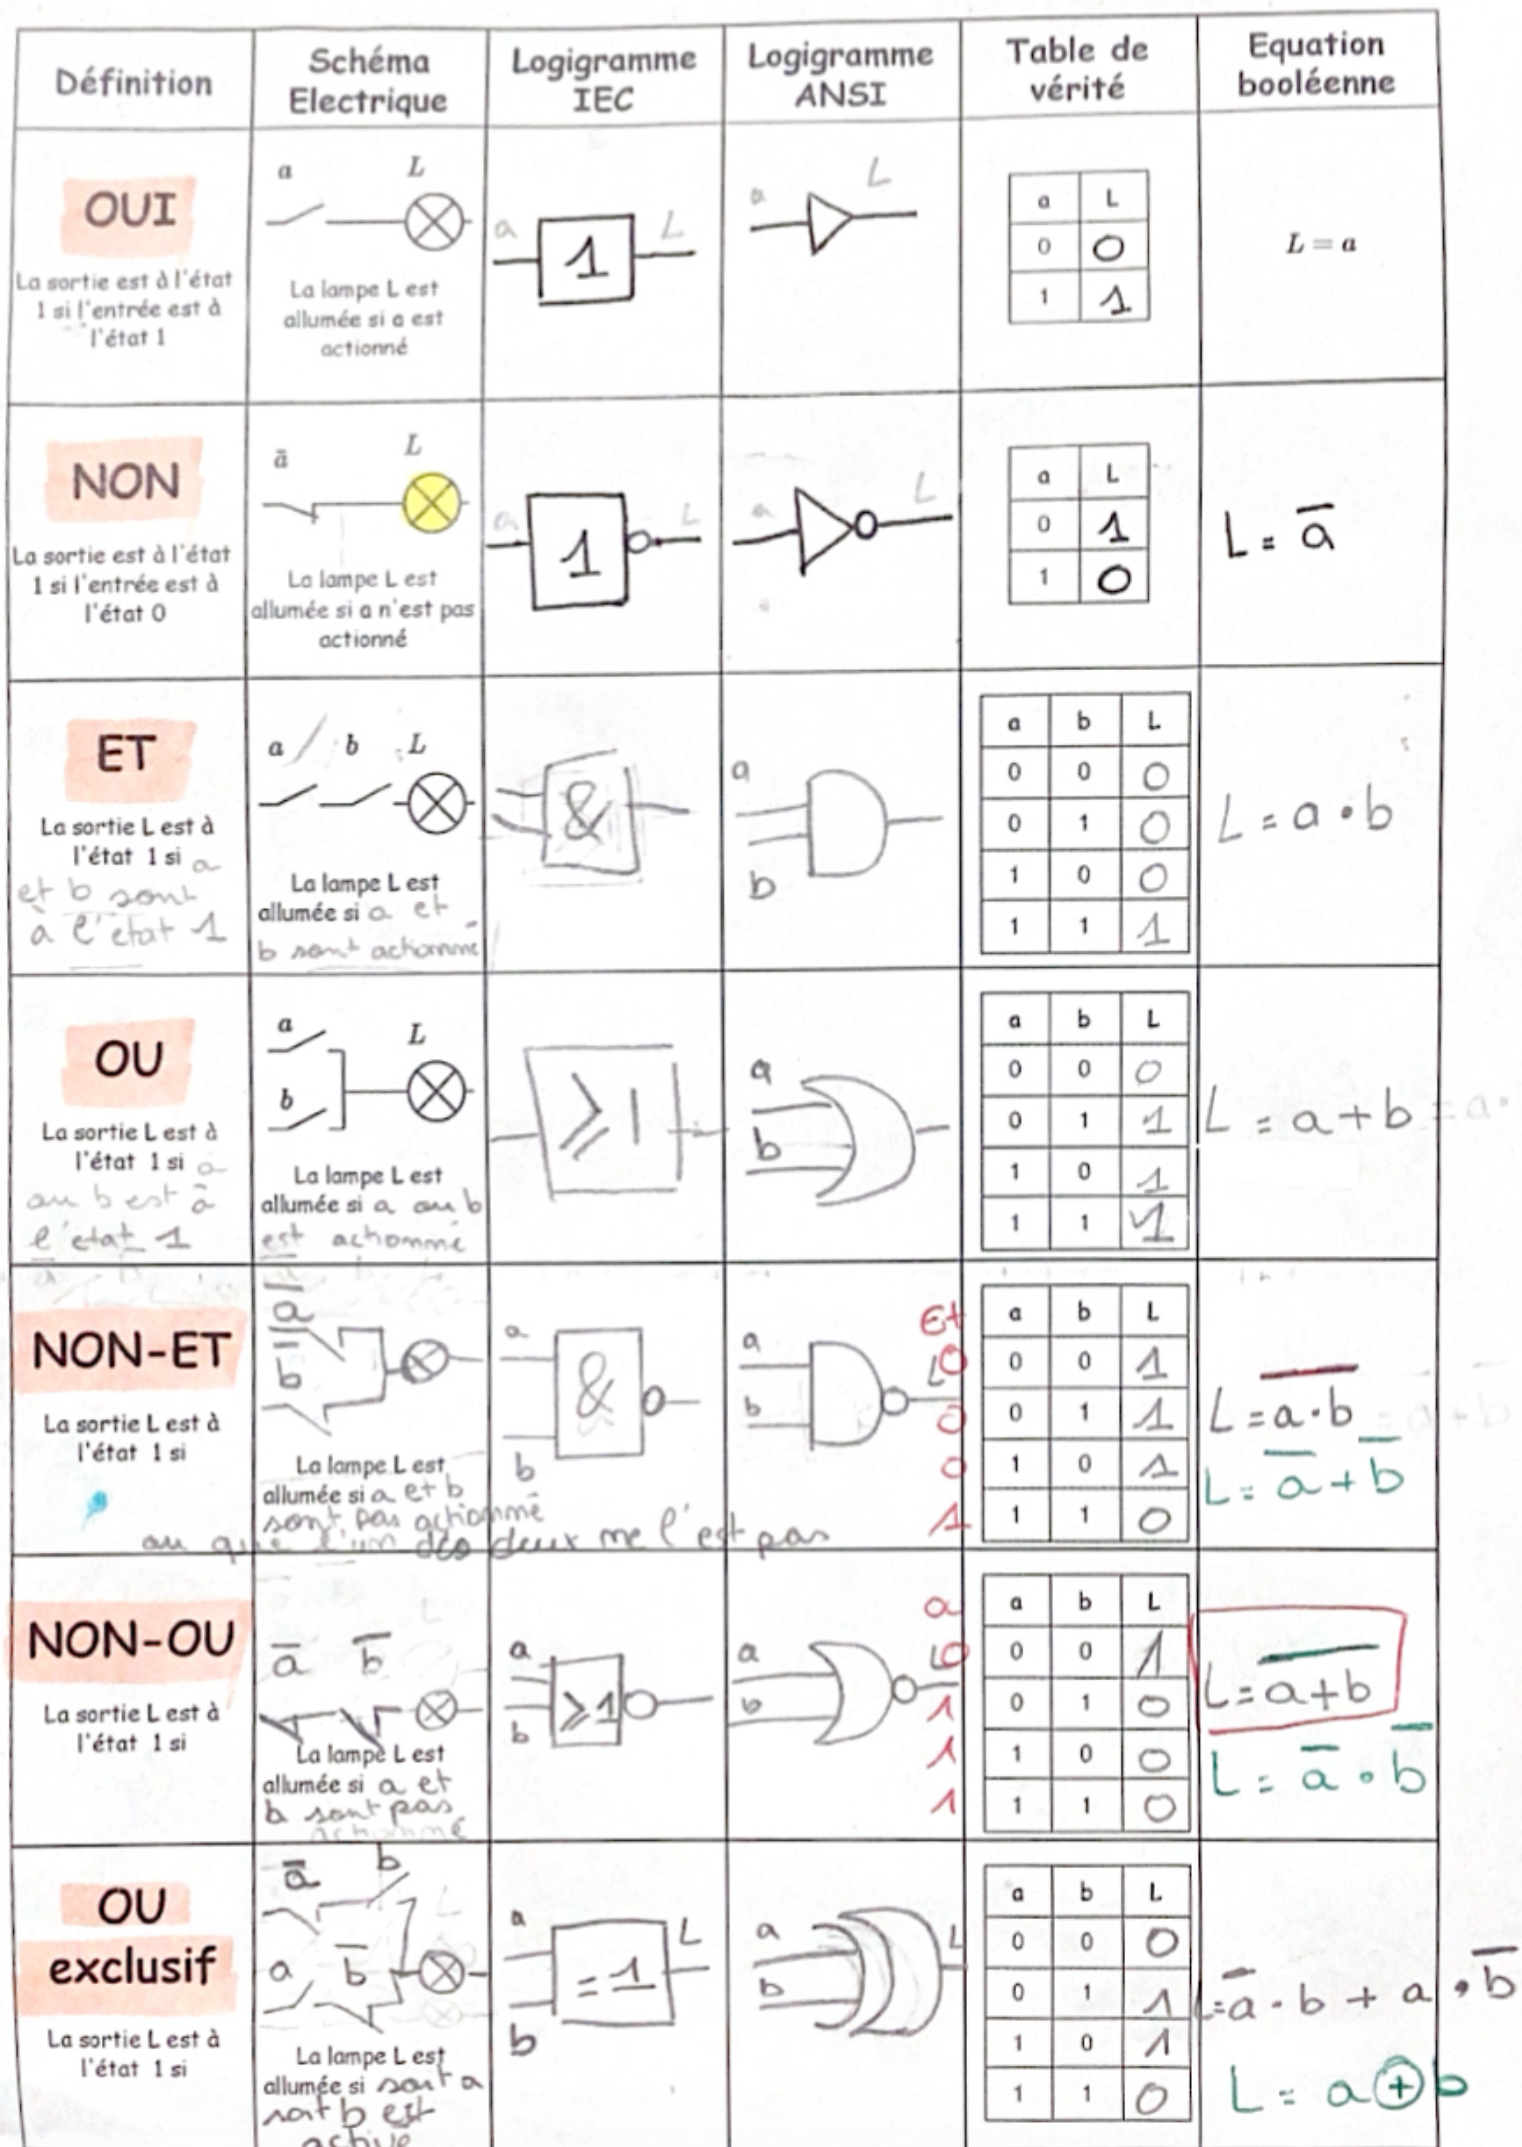 Définition
Schéma
Electrique
Logigramme
IEC
Logigramme
ANSI
Table de
vérité
Equation
booléenne
OUI
La sortie est à l'état
1 si l'entrée est à
l'état 1
a L
La lampe L est
allumée si a est
actionné
a 1 L
a L
a L
0 0
1 1
L = a
NON
La sortie est à l'état
1 si l'entrée est à
l'état 0
ā L
La lampe L est
allumée si a n'est pas
actionné
a 1 L
a L
a L
0 1
1 0
L = ā
ET
La sortie L est à
l'état 1 si a
et b sont
à l'état 1
a b L
La lampe L est
allumée si a et
b sont actionné
&
a
b
a b L
0 0 0
0 1 0
1 0 0
1 1 1
L = a • b
OU
La sortie L est à
l'état 1 si a
ou b est à
l'état 1
a
b
L
La lampe L est
allumée si a ou b
est actionné
⩾1
a
b
a b L
0 0 0
0 1 1
1 0 1
1 1 1
L = a + b
NON-ET
La sortie L est à
l'état 1 si
a̅
b̅
La lampe L est
allumée si a et b
sont pas actionné
ou que l'un des deux ne l'est pas
a
&
b
a
b
L
Et
0
0
0
1
a b L
0 0 1
0 1 1
1 0 1
1 1 0
L = a̅•̅b̅
L = a̅ + b̅
NON-OU
La sortie L est à
l'état 1 si
a̅ b̅
La lampe L est
allumée si a et
b sont pas
actionné
a
⩾1
b
a
b
L
0
1
1
1
a b L
0 0 1
0 1 0
1 0 0
1 1 0
L = a̅+̅b̅
L = a̅ • b̅
OU
exclusif
La sortie L est à
l'état 1 si
a̅ b
a b̅
La lampe L est
allumée si soit a
soit b est
active
a
=1
L
b
a
b
L
a b L
0 0 0
0 1 1
1 0 1
1 1 0
L = a̅ • b + a • b̅
L = a ⊕ b